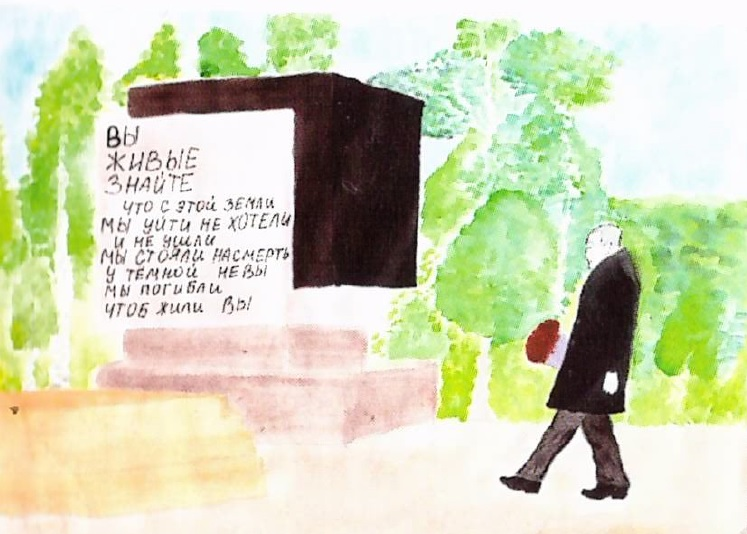 ВЫ
ЖИВЫЕ
ЗНАЙТЕ
ЧТО С ЭТОЙ ЗЕМЛИ
МЫ УЙТИ НЕ ХОТЕЛИ
И НЕ УШЛИ
МЫ СТОЯЛИ НАСМЕРТЬ
У ТЕМНОЙ НЕВЫ
МЫ ПОГИБЛИ
ЧТОБ ЖИЛИ ВЫ